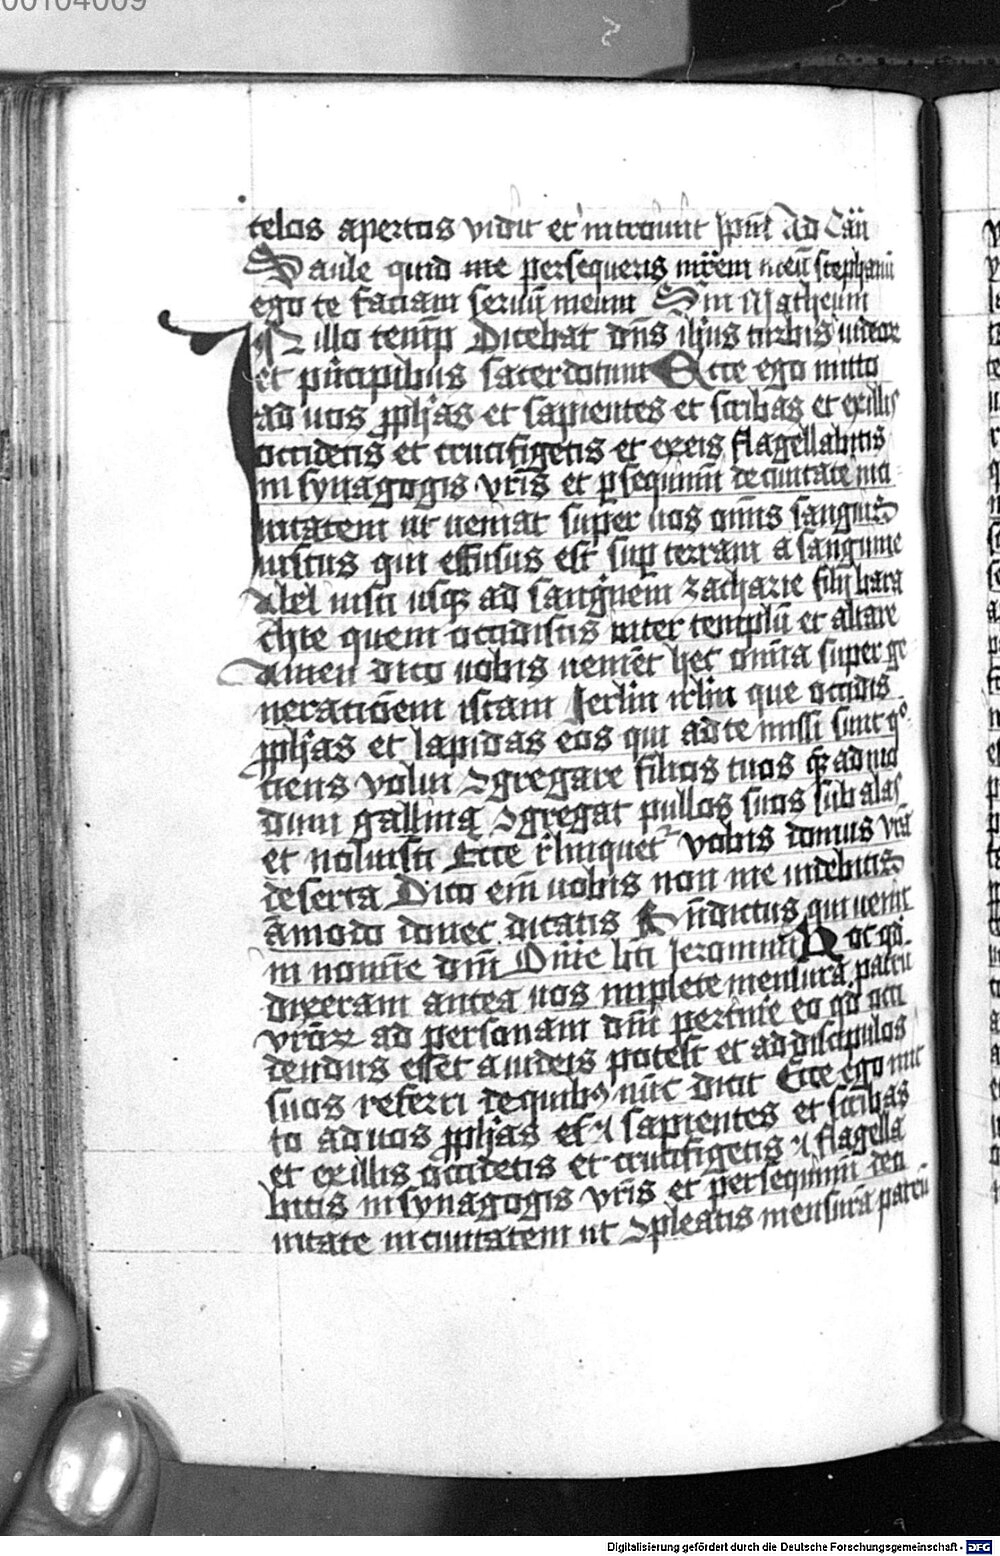 00104009
celos apertos vidit et introiuit ip̄m Ad Cān
Saule quid me persequeris mr̄em meū stephanū
ego te faciam seruū meum Sm Matheum
In illo temp̄ Dicebat dn̄s ih̄us turbis iudeoꝝ
et pͥncipibus sacerdotum Ecce ego mitto
ad uos ꝓph̄as et sapientes et scribas et ex illis
occidetis et crucifigetis et ex eis flagellabitis
in synagogis vr̄is et ꝑsequimī de ciuitate in ci
uitatem ut ueniat super uos om̄is sanguis
iustus qui effusus est suꝑ terram a sanguine
Abel iusti usqꝫ ad sangͥnem zacharie filij bara
chie quem occidistis inter templū et altare
Amen dico uobis uenient hec om̄ia super ge
nerationem istam Jerl̄m irl̄m que occidis
ꝓph̄as et lapidas eos qui ad te missi sunt qͦ
ciens volui ꝯgregare filios tuos qͤ̄ad mo
dum gallina ꝯgregat pullos suos sub alas
et noluisti Ecce rͤlinquetͬ vobis domus vr̄a
deserta Dico em̄ uobis non me uidebitis
āmodo donec dicatis Bn̄dictus qui uenit
in nomīe dom̄ Om̄ie bt̄i Jeronimi Hoc qd̄
dixeram antea uos implete mensurā patrū
vr̄oꝝ ad personam dn̄i pertinꝫ eo qd̄ occi
dendus esset a iudeis potest et ad discipulos
suos referri de quibꝰ nūc dicit Ecce ego mit
to ad uos ꝓph̄as et sapientes et scribas
et ex illis occidetis et crucifigetis ⁊ flagella
bitis in synagogis vr̄is et persequimī de ci
uitate in ciuitatem ut ꝯpleatis mensurā patrū
Digitalisierung gefördert durch die Deutsche Forschungsgemeinschaft - DFG